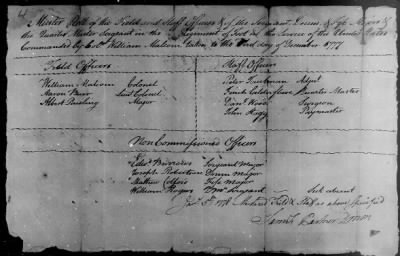 Muster Roll of the Field and Staff Officers & of the Serjeant, Drum & Fife Majors &
the Quarter Master Serjeant in the Regiment of Foot in the Service of the United States
Commanded by Colo. William Malcom taken to the first day of December 1777
Field Officers Staff Officers
William Malcom Colonel Peter Adjut
Aaron Burr Lieut Colonel Quarter Master
Albert Pawling Major Danl Wood Surgeon
John Paymaster
Non Commissioned Officers
Serjeant Major
Joseph Robertson Drum Major
Matthew Fife Major
William Rogers Qr Mr Serjeant Sick absent
Jany 5th 1778 Mustered Field & Staff as above specified